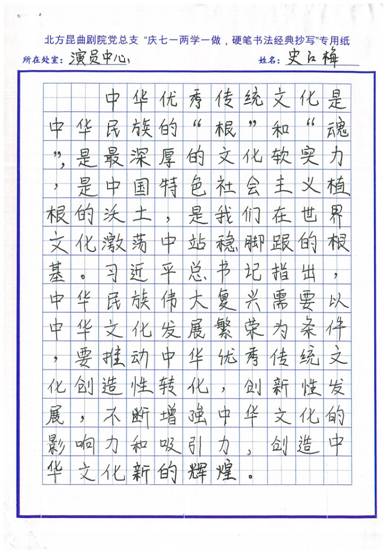 北方昆曲剧院党总支“庆七一两学一做，硬笔书法经典抄写”专用纸
所在处室：演员中心 姓名：史红梅
中华优秀传统文化是
中华民族的“根”和“魂
”，是最深厚的文化软实力
，是中国特色社会主义植
根的沃土，是我们在世界
文化激荡中站稳脚跟的根
基。习近平总书记指出，
中华民族伟大复兴需要以
中华文化发展繁荣为条件
，要推动中华优秀传统文
化创造性转化，创新性发
展，不断增强中华文化的
影响力和吸引力，创造中
华文化新的辉煌。